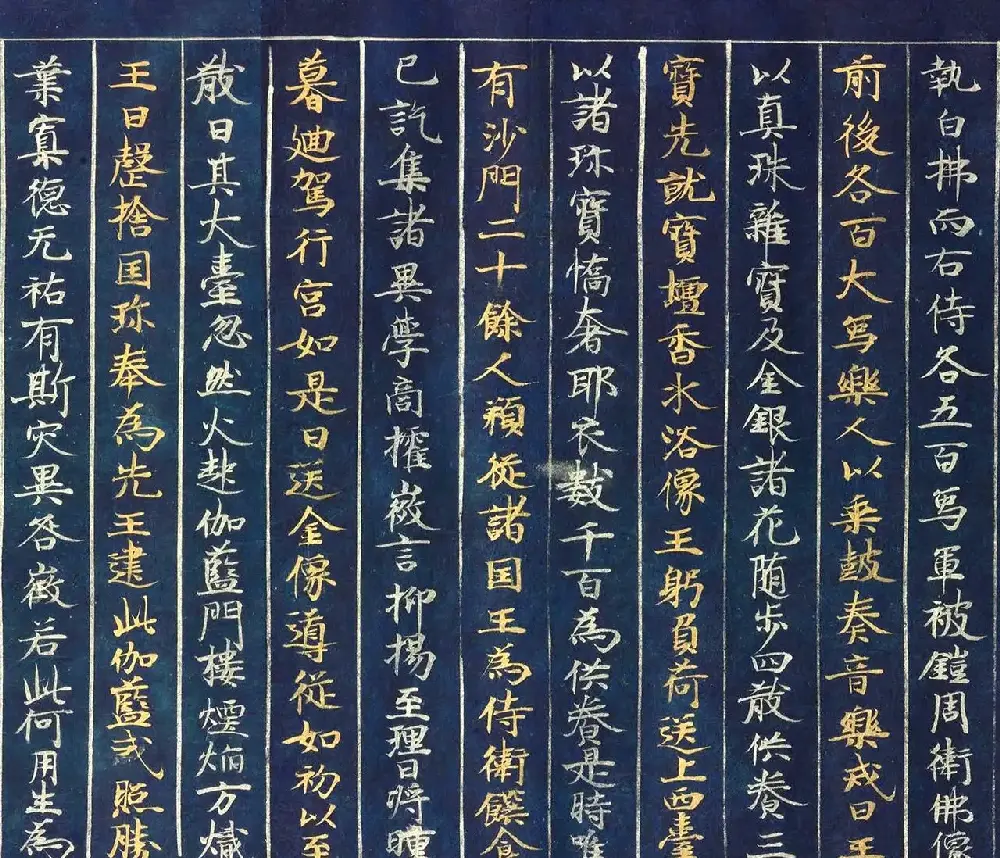 執白拂而右侍各五百鴈軍被鎧周衛佛像
前後各百大鴈樂人以乘鼓奏音樂戒日王
以真珠雜寶及金銀諸花随步四散供養三
寶先就寶壇香水浴像王躬負荷送上西臺
以諸珎寶憍奢耶衣數千百為供養是時唯
有沙門二十餘人預從諸国王為侍衛饌食
已訖集諸異學商攉微言抑揚至理日将曛
暮迴駕行宮如是日送金像導從如初以至
散日其大臺忽然火起伽藍門樓煙焰方熾
王日罄捨国珎奉為先王建此伽藍式照勝
葉寡德无祐有斯灾異咎徵若此何用生為